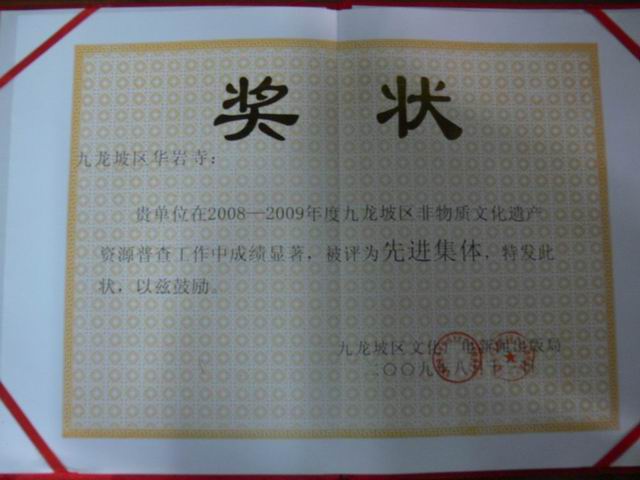 奖 状
九龙坡区华岩寺：
贵单位在2008—2009年度九龙坡区非物质文化遗产
资源普查工作中成绩显著，被评为先进集体，特发此
状，以兹鼓励。
九龙坡区文化广电新闻出版局
二〇〇九年八月十